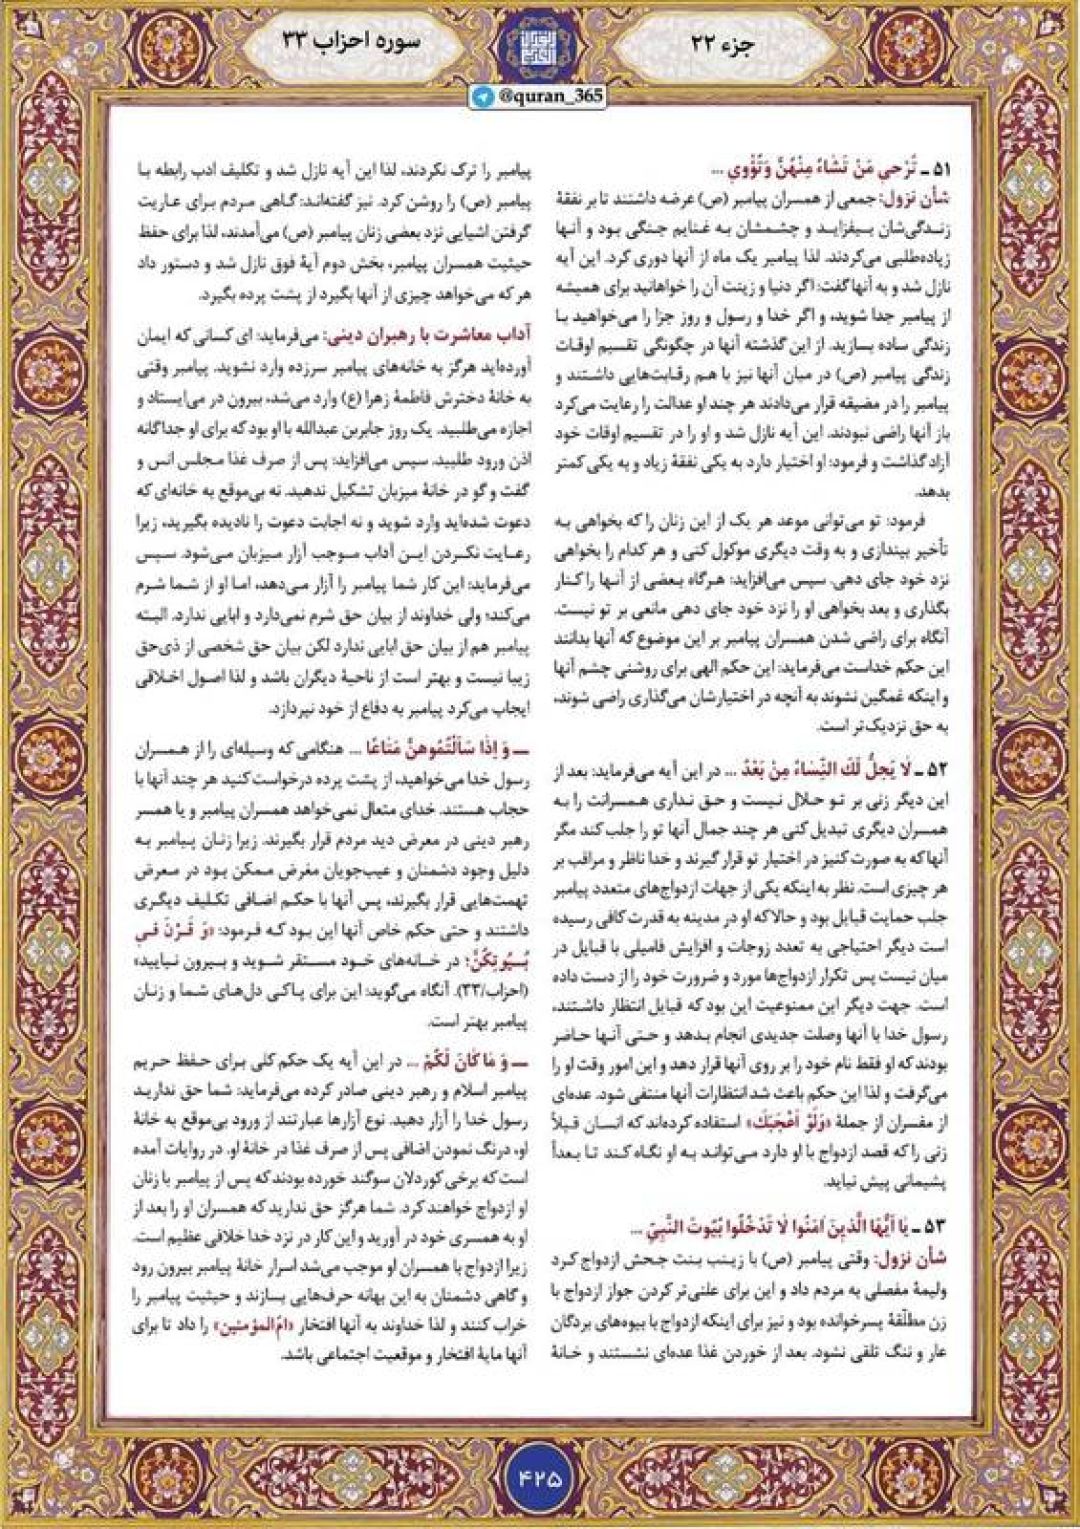 جزء ۲۲
سوره احزاب ۳۳
@quran_365
۵۱ ـ تُرْجي مَنْ تَشاءُ مِنْهُنَّ وَتُؤْوي ...
شأن نزول: جمعی از همسران پیامبر (ص) عرضه داشتند تا بر نفقهٔ
زندگی‌شان بیفزاید و چشمشان به غنایم جنگی بود و آنها
زیاده‌طلبی می‌کردند. لذا پیامبر یک ماه از آنها دوری کرد. این آیه
نازل شد و به آنها گفت: اگر دنیا و زینت آن را خواهانید برای همیشه
از پیامبر جدا شوید، و اگر خدا و رسول و روز جزا را می‌خواهید با
زندگی ساده بسازید. از این گذشته آنها در چگونگی تقسیم اوقات
زندگی پیامبر (ص) در میان آنها نیز با هم رقابت‌هایی داشتند و
پیامبر را در مضیقه قرار می‌دادند هر چند او عدالت را رعایت می‌کرد
باز آنها راضی نبودند. این آیه نازل شد و او را در تقسیم اوقات خود
آزاد گذاشت و فرمود: او اختیار دارد به یکی نفقهٔ زیاد و به یکی کمتر
بدهد.
فرمود: تو می‌توانی موعد هر یک از این زنان را که بخواهی به
تأخیر بیندازی و به وقت دیگری موکول کنی و هر کدام را بخواهی
نزد خود جای دهی. سپس می‌افزاید: هرگاه بعضی از آنها را کنار
بگذاری و بعد بخواهی او را نزد خود جای دهی مانعی بر تو نیست.
آنگاه برای راضی شدن همسران پیامبر بر این موضوع که آنها بدانند
این حکم خداست می‌فرماید: این حکم الهی برای روشنی چشم آنها
و اینکه غمگین نشوند به آنچه در اختیارشان می‌گذاری راضی شوند،
به حق نزدیک‌تر است.
۵۲ ـ لا يَحِلُّ لَكَ النِّساءُ مِنْ بَعْدُ ... در این آیه می‌فرماید: بعد از
این دیگر زنی بر تو حلال نیست و حق نداری همسرانت را به
همسران دیگری تبدیل کنی هر چند جمال آنها تو را جلب کند مگر
آنها که به صورت کنیز در اختیار تو قرار گیرند و خدا ناظر و مراقب بر
هر چیزی است. نظر به اینکه یکی از جهات ازدواج‌های متعدد پیامبر
جلب حمایت قبایل بود و حالا که او در مدینه به قدرت کافی رسیده
است دیگر احتیاجی به تعدد زوجات و افزایش فامیلی با قبایل در
میان نیست پس تکرار ازدواج‌ها مورد و ضرورت خود را از دست داده
است. جهت دیگر این ممنوعیت این بود که قبایل انتظار داشتند،
رسول خدا با آنها وصلت جدیدی انجام بدهد و حتی آنها حاضر
بودند که او فقط نام خود را بر روی آنها قرار دهد و این امور وقت او را
می‌گرفت و لذا این حکم باعث شد انتظارات آنها منتفی شود. عده‌ای
از مفسران از جملهٔ «وَلَوْ اَعْجَبَكَ» استفاده کرده‌اند که انسان قبلاً
زنی را که قصد ازدواج با او دارد می‌تواند به او نگاه کند تا بعداً
پشیمانی پیش نیاید.
۵۳ ـ يا اَيُّهَا الَّذينَ آمَنُوا لا تَدْخُلُوا بُيُوتَ النَّبِيِّ ...
شأن نزول: وقتی پیامبر (ص) با زینب بنت جحش ازدواج کرد
ولیمهٔ مفصلی به مردم داد و این برای علنی‌تر کردن جواز ازدواج با
زن مطلّقهٔ پسرخوانده بود و نیز برای اینکه ازدواج با بیوه‌های بردگان
عار و ننگ تلقی نشود. بعد از خوردن غذا عده‌ای نشستند و خانهٔ
پیامبر را ترک نکردند، لذا این آیه نازل شد و تکلیف ادب رابطه با
پیامبر (ص) را روشن کرد. نیز گفته‌اند: گاهی مردم برای عاریت
گرفتن اشیایی نزد بعضی زنان پیامبر (ص) می‌آمدند، لذا برای حفظ
حیثیت همسران پیامبر، بخش دوم آیهٔ فوق نازل شد و دستور داد
هر که می‌خواهد چیزی از آنها بگیرد از پشت پرده بگیرد.
آداب معاشرت با رهبران دینی: می‌فرماید: ای کسانی که ایمان
آورده‌اید هرگز به خانه‌های پیامبر سرزده وارد نشوید. پیامبر وقتی
به خانهٔ دخترش فاطمهٔ زهرا (ع) وارد می‌شد، بیرون در می‌ایستاد و
اجازه می‌طلبید. یک روز جابربن عبدالله با او بود که برای او جداگانه
اذن ورود طلبید. سپس می‌افزاید: پس از صرف غذا مجلس انس و
گفت و گو در خانهٔ میزبان تشکیل ندهید. نه بی‌موقع به خانه‌ای که
دعوت شده‌اید وارد شوید و نه اجابت دعوت را نادیده بگیرید، زیرا
رعایت نکردن این آداب موجب آزار میزبان می‌شود. سپس
می‌فرماید: این کار شما پیامبر را آزار می‌دهد، اما او از شما شرم
می‌کند؛ ولی خداوند از بیان حق شرم نمی‌دارد و ابایی ندارد. البته
پیامبر هم از بیان حق ابایی ندارد لکن بیان حق شخصی از ذی‌حق
زیبا نیست و بهتر است از ناحیهٔ دیگران باشد و لذا اصول اخلاقی
ایجاب می‌کرد پیامبر به دفاع از خود نپردازد.
ـــ وَ اِذا سَاَلْتُمُوهُنَّ مَتاعًا ... هنگامی که وسیله‌ای را از همسران
رسول خدا می‌خواهید، از پشت پرده درخواست کنید هر چند آنها با
حجاب هستند. خدای متعال نمی‌خواهد همسران پیامبر و یا همسر
رهبر دینی در معرض دید مردم قرار بگیرند. زیرا زنان پیامبر به
دلیل وجود دشمنان و عیب‌جویان مغرض ممکن بود در معرض
تهمت‌هایی قرار بگیرند، پس آنها با حکم اضافی تکلیف دیگری
داشتند و حتی حکم خاص آنها این بود که فرمود: «وَ قَرْنَ في
بُيُوتِكُنَّ؛ در خانه‌های خود مستقر شوید و بیرون نیایید»
(احزاب/۳۳). آنگاه می‌گوید: این برای پاکی دل‌های شما و زنان
پیامبر بهتر است.
ـــ وَ ما كانَ لَكُمْ ... در این آیه یک حکم کلی برای حفظ حریم
پیامبر اسلام و رهبر دینی صادر کرده می‌فرماید: شما حق ندارید
رسول خدا را آزار دهید. نوع آزارها عبارتند از ورود بی‌موقع به خانهٔ
او، درنگ نمودن اضافی پس از صرف غذا در خانهٔ او. در روایات آمده
است که برخی کوردلان سوگند خورده بودند که پس از پیامبر با زنان
او ازدواج خواهند کرد. شما هرگز حق ندارید که همسران او را بعد از
او به همسری خود در آورید و این کار در نزد خدا خلافی عظیم است.
زیرا ازدواج با همسران او موجب می‌شد اسرار خانهٔ پیامبر بیرون رود
و گاهی دشمنان به این بهانه حرف‌هایی بسازند و حیثیت پیامبر را
خراب کنند و لذا خداوند به آنها افتخار «امّ‌المؤمنین» را داد تا برای
آنها مایهٔ افتخار و موقعیت اجتماعی باشد.
۴۲۵